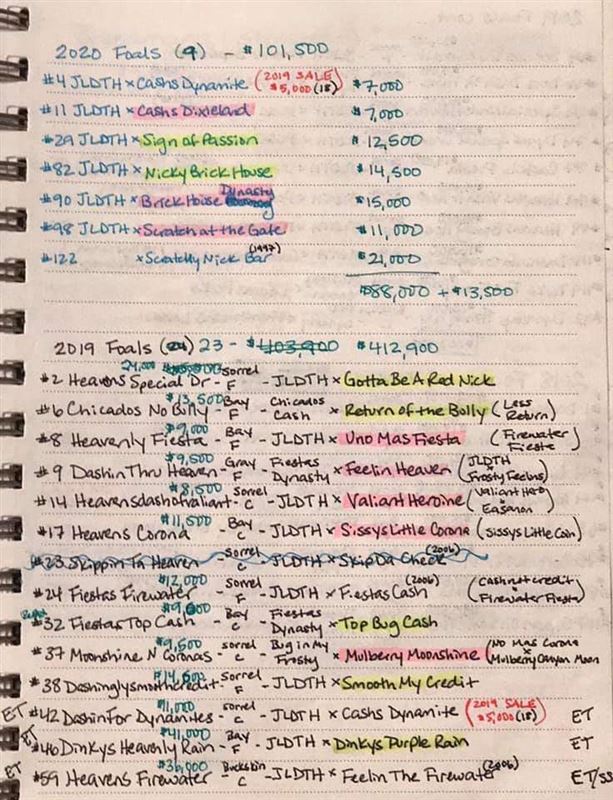 2020 Foals (9) - $101,500
#4 JLDTH x Cashs Dynamite (2019 SALE $5,000 (18)) $7,000
#11 JLDTH x Cashs Dixieland $7,000
#29 JLDTH x Sign of Passion $12,500
#82 JLDTH x Nicky Brick House $14,500
#90 JLDTH x Brick House Dynasty $15,000
#98 JLDTH x Scratch at the Gate $11,000
#122 x Scratchy Nick Bar (1997) $21,000
$88,000 + $13,500
2019 Foals (24) 23 - $403,900 $412,900
24,000
#2 Heavens Special Dr - Sorrel F - JLDTH x Gotta Be A Red Nick
$13,500
#6 Chicados No Billy - Bay F - Chicados Cash x Return of the Bolly (Less Return)
$9,000
#8 Heavenly Fiesta - Bay F - JLDTH x Uno Mas Fiesta (Firewater Fiesta)
$9,500
#9 Dashin Thru Heaven - Gray F - Fiestas Dynasty x Feelin Heaven (JLDTH x Frosty Feelins)
$8,500
#14 Heavensdashofvaliant - Sorrel C - JLDTH x Valiant Heroine (Valiant Hero x Easanon)
$11,500
#17 Heavens Corona - Bay C - JLDTH x Sissys Little Corona (Sissys Little Coin)
#23 Skippin Ta Heaven - Sorrel C - JLDTH x Skip Da Check (2006)
$12,000
#24 Fiestas Firewater - Sorrel F - JLDTH x Fiestas Cash (2006) (Cash not credit x Firewater Fiesta)
$9,000
#32 Fiestas Top Cash - Bay C - Fiestas Dynasty x Top Bug Cash
$9,500
#37 Moonshine N Coronas - Sorrel C - Bug in My Frosty x Mulberry Moonshine (No Mas Corona x Mulberry Canyon Moon)
$14,000
#38 Dashinglysmoothcredit - Sorrel F - JLDTH x Smooth My Credit
$11,000
ET #42 Dashin For Dynamites - Sorrel C - JLDTH x Cashs Dynamite (2019 SALE $5,000 (18)) ET
$41,000
ET #46 Dinkys Heavenly Rain - Bay F - JLDTH x Dinkys Purple Rain ET
$36,000
ET #59 Heavens Firewater - Buckskin C - JLDTH x Feelin The Firewater (2006) ET/SS